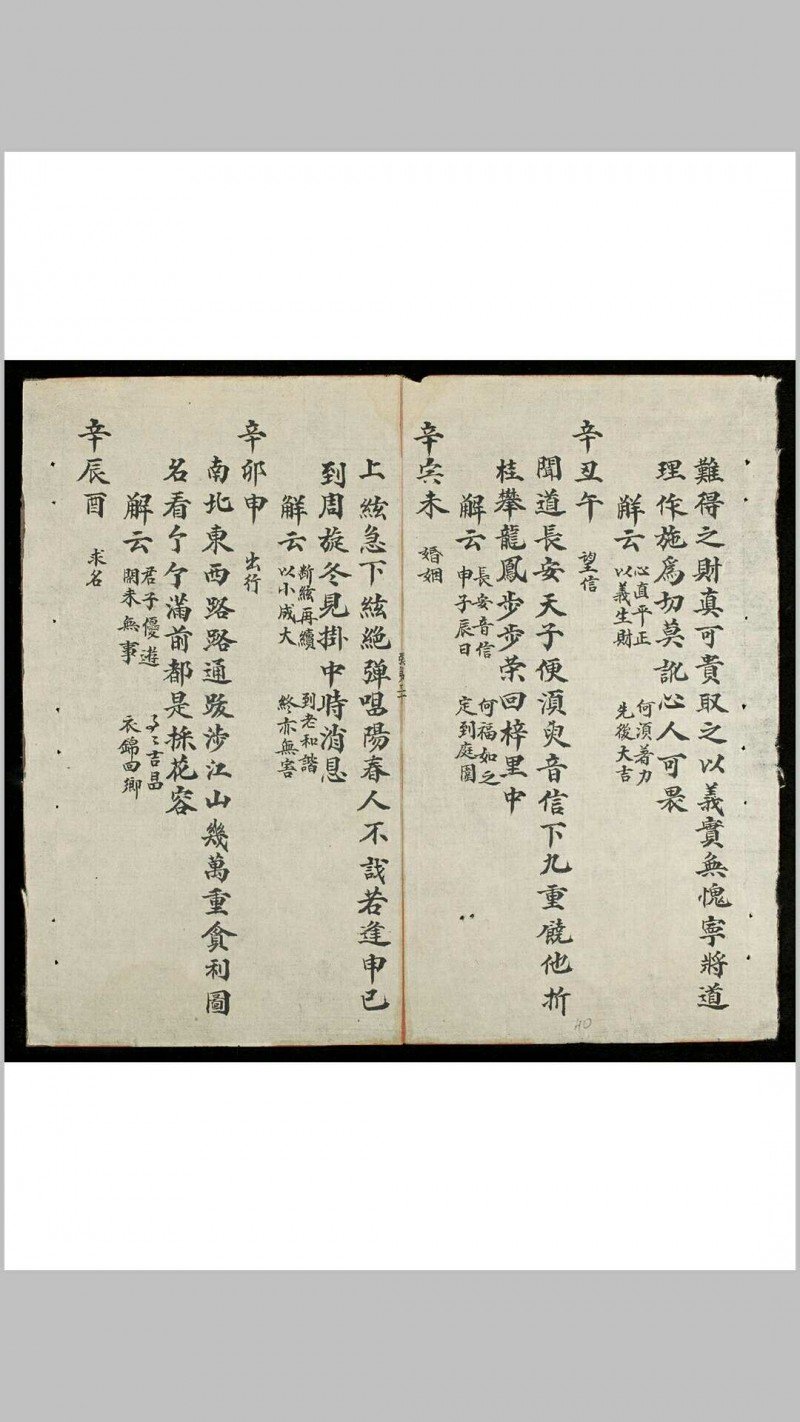 難得之財真可貴取之以義實無愧寧將道
理作施爲切莫訛心人可畏
解云
心直平正 何湏着力
以義生財 先後大吉
辛丑午 望信
聞道長安天子使湏臾音信下九重饒他折
桂攀龍鳳步步荣回梓里中
解云
長安音信 何福如之
申子辰日 定到庭圍
辛寅未 婚姻
上絃急下絃絶弹唱陽春人不
若逢申巳
到周旋冬見掛中時消息
解云
断絃再續 到老和諧
以小成大 終亦無害
辛卯申 出行
南北東西路路通跋涉江山幾萬重貪利圖
名看亇亇滿前都是採花容
解云
君子優遊 吉昌
閑来無事 衣錦回鄉
辛辰酉 求名
40